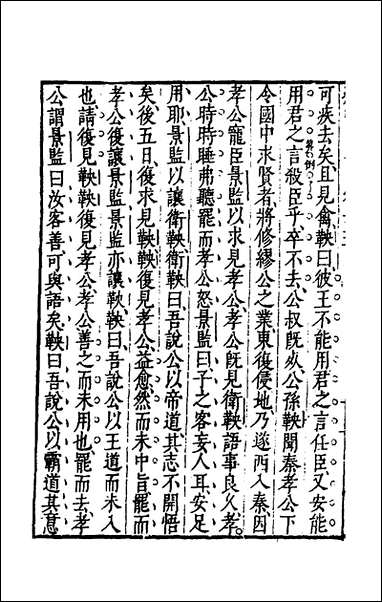 可疾去矣且見禽鞅曰彼王不能用君之言任臣又安能
用君之言殺臣乎卒不去公叔既死公孫鞅聞秦孝公下
令國中求賢者將修繆公之業東復侵地乃遂西入秦因
孝公寵臣景監以求見孝公孝公既見衛鞅語事良久孝
公時時睡弗聽罷而孝公怒景監曰子之客妄人耳安足
用耶景監以讓衛鞅衛鞅曰吾說公以帝道其志不開悟
矣後五日復求見鞅鞅復見孝公益愈然而未中旨罷而
孝公復讓景監景監亦讓鞅鞅曰吾說公以王道而未入
也請復見鞅鞅復見孝公孝公善之而未用也罷而去孝
公謂景監曰汝客善可與語矣鞅曰吾說公以霸道其意